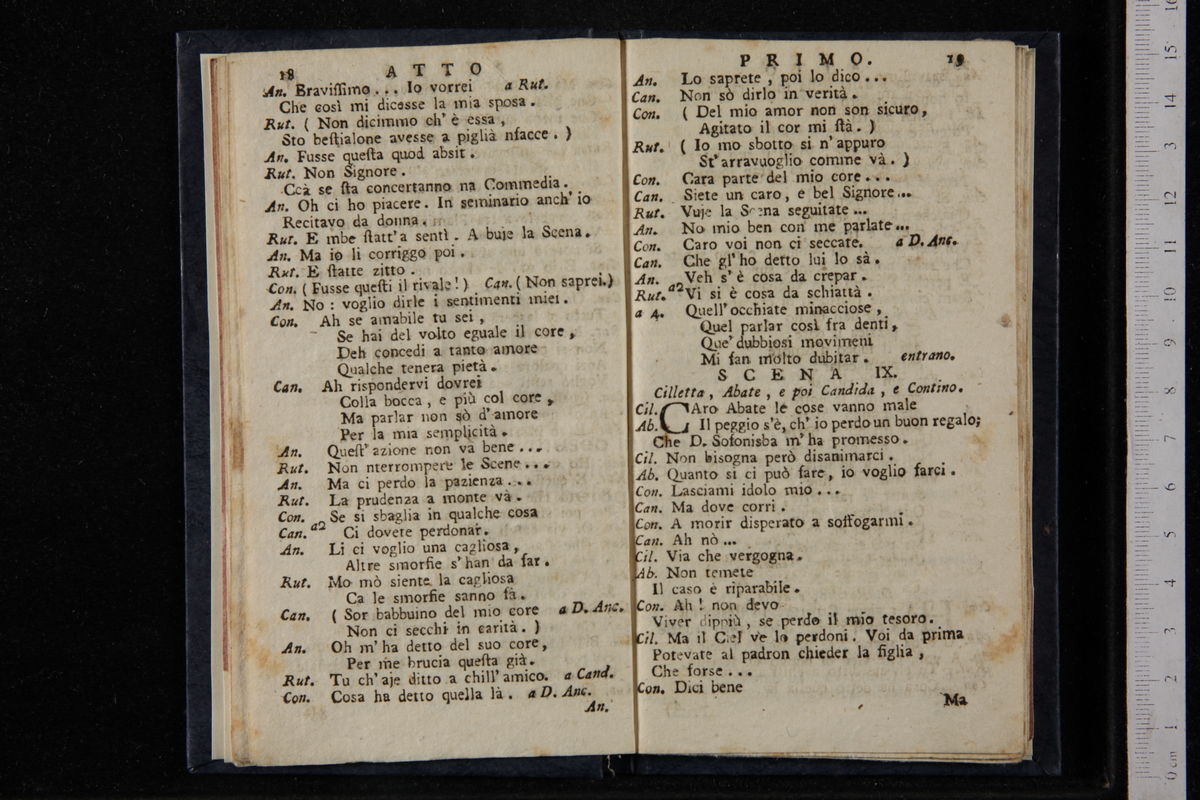 18 ATTO
An. Braviſſimo... Io vorrei a Rut.
Che così mi dicesse la mia sposa.
Rut. ( Non dicimmo ch' è essa,
Sto beſtialone avesse a piglià nfacce. )
An. Fusse queſta quod absit.
Rut. Non Signore.
Ccà se ſta concertanno na Commedia.
An. Oh ci ho piacere. In seminario anch' io
Recitavo da donna.
Rut. E mbe ſtatt'a sentì. A buje la Scena.
An. Ma io li corriggo poi.
Rut. E ſtatte zitto.
Con. ( Fusse queſti il rivale! ) Can. ( Non saprei. )
An. No: voglio dirle i sentimenti miei.
Con. Ah se amabile tu sei,
Se hai del volto eguale il core,
Deh concedi a tanto amore
Qualche tenera pietà.
Can. Ah rispondervi dovrei
Colla bocca, e più col core,
Ma parlar non sò d'amore
Per la mia semplicità.
An. Queſt' azione non va bene...
Rut. Non nterrompere le Scene...
An. Ma ci perdo la pazienza...
Rut. La prudenza a monte và.
Con. Se si sbaglia in qualche cosa
Can. a2 Ci dovete perdonar.
An. Li ci voglio una cagliosa,
Altre smorfie s'han da far.
Rut. Mo mò siente la cagliosa
Ca le smorfie sanno fà.
Can. ( Sor babbuino del mio core a D. Anc.
Non ci secchi in carità. )
An. Oh m'ha detto del suo core,
Per me brucia queſta già.
Rut. Tu ch'aje ditto a chill'amico. a Cand.
Con. Cosa ha detto quella là. a D. Anc.
An.
PRIMO. 19
An. Lo saprete, poi lo dico...
Can. Non sò dirlo in verità.
Con. ( Del mio amor non son sicuro,
Agitato il cor mi ſtà. )
Rut. ( Io mo sbotto si n'appuro
St'arravuoglio comme và. )
Con. Cara parte del mio core...
Can. Siete un caro, e bel Signore...
Rut. Vuje la Scena seguitate...
An. No mio ben con me parlate...
Con. Caro voi non ci seccate. a D. Anc.
Can. Che gl'ho detto lui lo sà.
An. Veh s'è cosa da crepar.
Rut. a2 Vi si è cosa da schiattà.
a 4. Quell'occhiate minacciose,
Quel parlar così fra denti,
Que' dubbiosi movimeni
Mi fan molto dubitar. entrano.
SCENA IX.
Cilletta, Abate, e poi Candida, e Contino.
Cil. CAro Abate le cose vanno male
Ab. Il peggio s'è, ch' io perdo un buon regalo;
Che D. Sofonisba m'ha promesso.
Cil. Non bisogna però disanimarci.
Ab. Quanto si ci può fare, io voglio farci.
Con. Lasciami idolo mio...
Can. Ma dove corri.
Con. A morir disperato a soffogarmi.
Can. Ah nò...
Cil. Via che vergogna.
Ab. Non temete
Il caso è riparabile.
Con. Ah! non devo
Viver dippiù, se perdo il mio tesoro.
Cil. Ma il Ciel ve lo perdoni. Voi da prima
Potevate al padron chieder la figlia,
Che forse...
Con. Dici bene
Ma